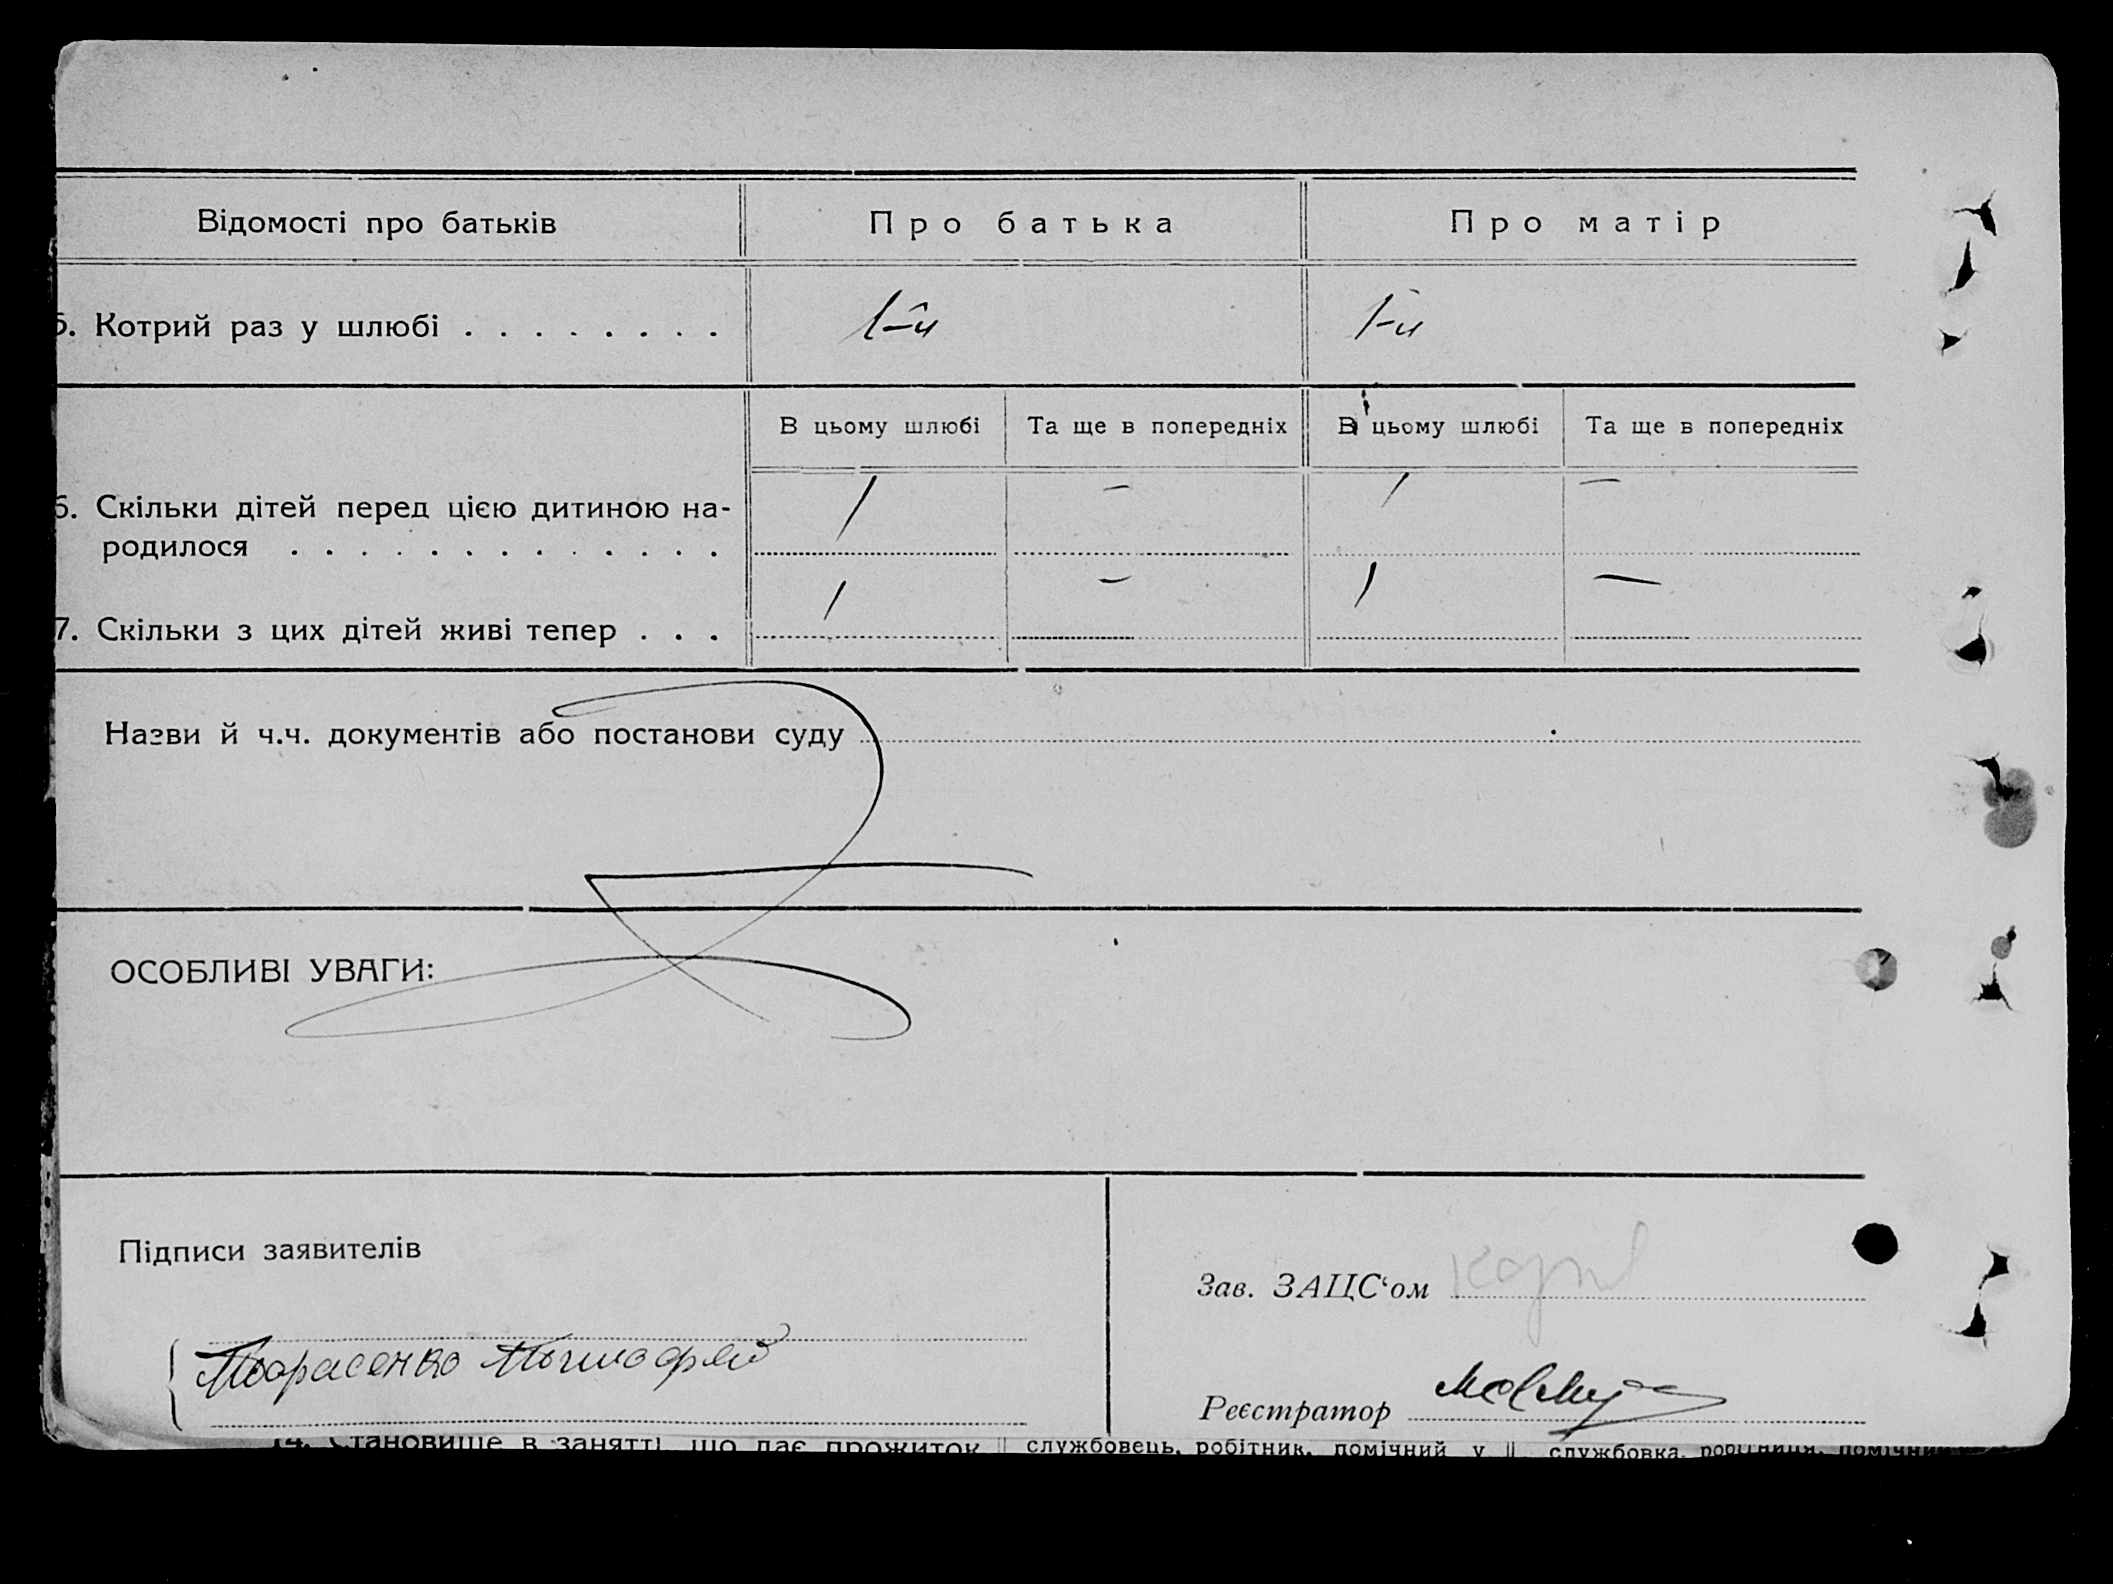 Відомості про батьків Про батька Про матір
5. Котрий раз у шлюбі . . . . . . . . 1-й 1-й
В цьому шлюбі Та ще в попередніх В цьому шлюбі Та ще в попередніх
6. Скільки дітей перед цією дитиною на- 1 – 1 –
родилося . . . . . . . . . . . . .
7. Скільки з цих дітей живі тепер . . . 1 – 1 –
Назви й ч.ч. документів або постанови суду
ОСОБЛИВІ УВАГИ:
Підписи заявителів
Зав. ЗАЦС‘ом
Тарасенко
Реєстратор
14. Становище в занятті, що дає прожиток службовець, робітник, помічний у службовка, робітниця, помічний